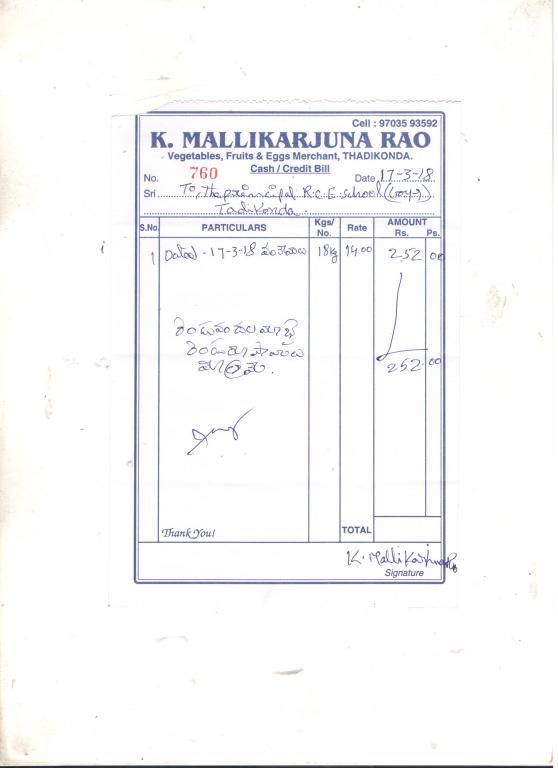 Cell : 97035 93592
K. MALLIKARJUNA RAO
Vegetables, Fruits & Eggs Merchant, THADIKONDA.
Cash / Credit Bill
No. 760 Date 17-3-18
Sri To, The principal R.C.E. school
Tadikonda
S.No. PARTICULARS Kgs/No. Rate AMOUNT Rs. Ps.
1 Dated - 17-3-18 వంకాయలు 18kg 14.00 252 00
రెండువందల యాభై
రెండు రూపాయలు
మాత్రమే.
252.00
Thank You! TOTAL
K. Mallikarjuna Rao
Signature